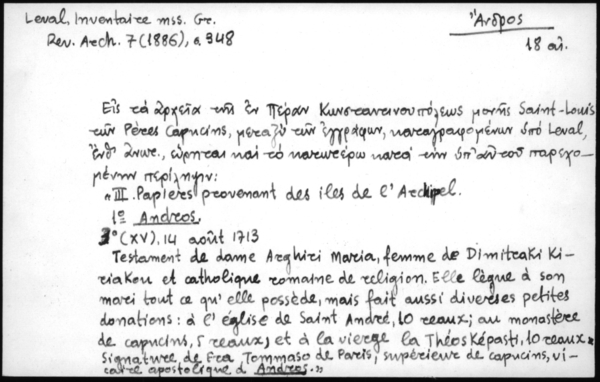 Leval, Inventaire mss. Gr.
Rev. Arch. 7 (1886), σ 348
Ἄνδρος
18 αἰ.
Εἰς τὰ ἀρχεῖα τῆς ἐν Πέραν Κωνσταντινουπόλεως μονῆς Saint-Louis
τῶν Pères Capucins, μεταξὺ τῶν ἐγγράφων, καταγραφομένων ὑπὸ Leval,
ἔνθ' ἄνωτ., εὕρηται καὶ τὸ κατωτέρω κατὰ τὴν ὑπ' αὐτοῦ παρεχο-
μένην περίληψιν:
"III. Papiers provenant des iles de l'Archipel.
1º Andros.
3º (XV), 14 août 1713
Testament de dame Arghiri Maria, femme de Dimitraki Ki-
riakou et catholique romaine de religion. Elle lègue à son
mari tout ce qu'elle possède, mais fait aussi diverses petites
donations: à l'église de Saint André, 10 reaux; au monastère
de capucins, 5 reaux; et à la vierge la Théos Képasti, 10 reaux.
Signature de Fra Tommaso de Paris, supérieur de capucins, vi-
caire apostolique d'Andros."